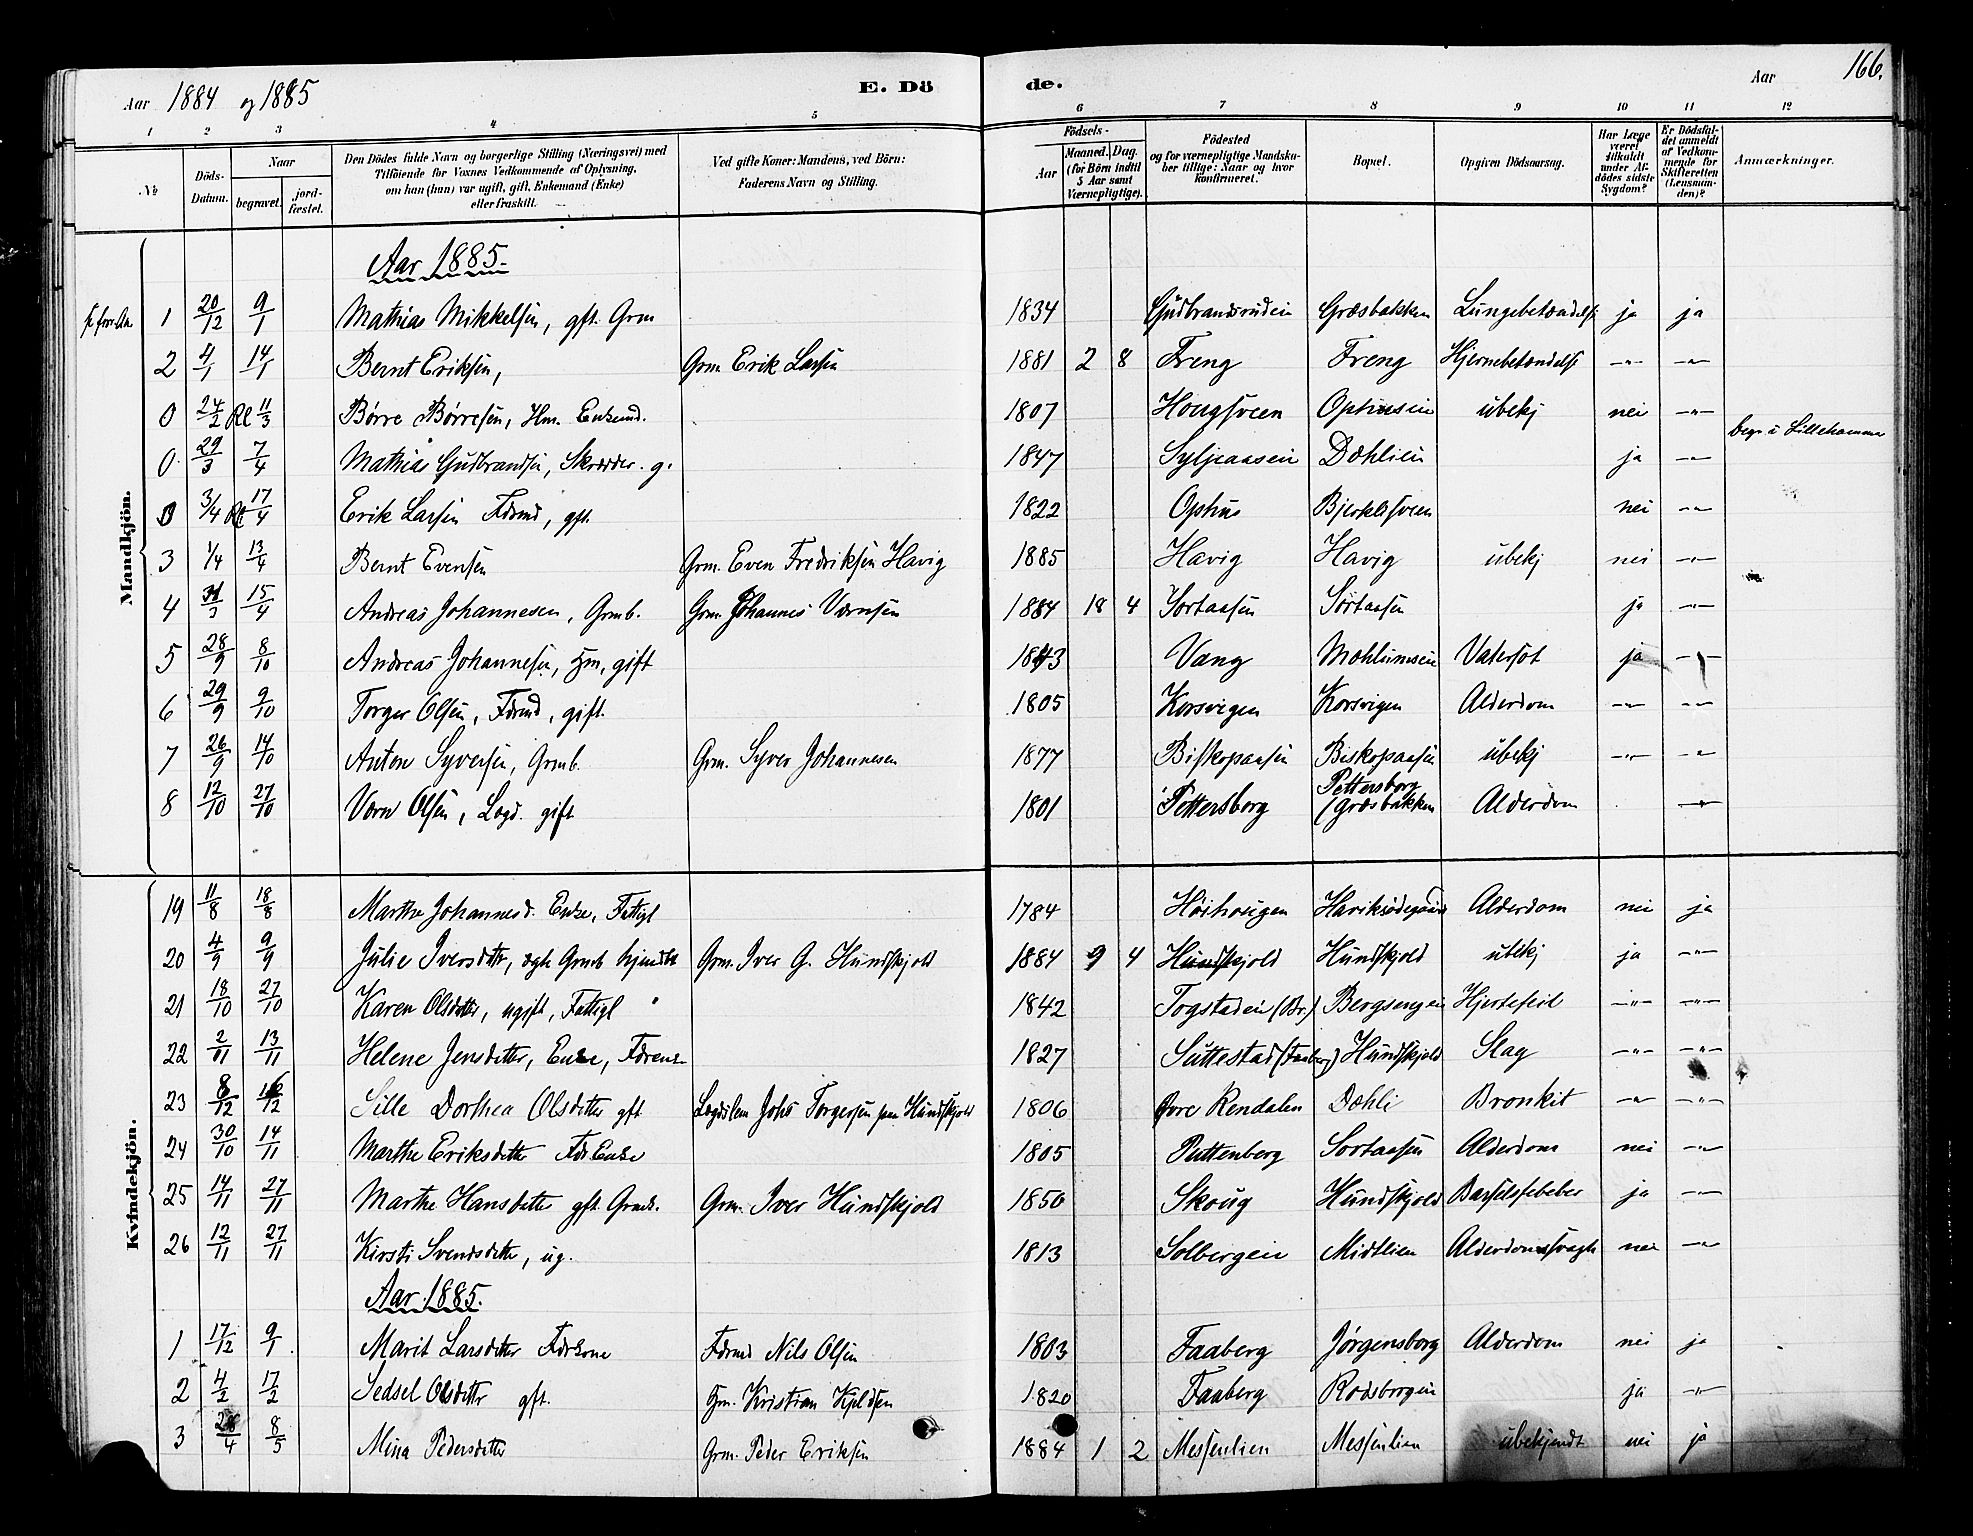 Aar 1884 og 1885 E. Dö de. Aar 166.
1 2 3 4 5 6 7 8 9 10 11 12
№
Döds-Datum.
Naar
begravet.
jord-fæstet.
Den Dödes fulde Navn og borgerlige Stilling (Næringsvei) med
Tilföiende for Voxnes Vedkommende af Oplysning,
om han (hun) var ugift, gift, Enkemand (Enke)
eller fraskilt.
Ved gifte Koner: Mandens, ved Börn:
Faderens Navn og Stilling.
Födsels-
Aar
Maaned. Dag.
(for Börn indtil
5 Aar samt
Værnepligtige).
Födested
og for værnepligtige Mandska-
ber tillige: Naar og hvor
konfirmeret.
Bopæl.
Opgiven Dödsaarsag.
Har Læge
været
tilkaldt
under Af-
dödes sidste
Sygdom?
Er Dödsfal-
det anmeldt
af Vedkom-
mende for
Skifteretten
(Lensman-
den)?
Anmærkninger.
Mandkjön.
Aar 1885.
1 20/12 9/1 Mathias Mikkelsen, gft. Grm 1834 Gudbrandsrudein Græsbakken Lungebetændelse ja ja
2 4/1 14/1 Bernt Eriksen, Grm Erik Larsen 1881 2 8 Freng Freng Hjernebetændelse -"- -"-
0 24/2 11/3 Børre Børresen, Hm. Enkemd. 1807 Hougsveen Ophusein ubekj nei -"-
begr. i Lillehammer
0 29/3 7/4 Mathias Gudbrandsen, Skrædder. g. 1847 Syljeaasein Dæhlien ja -"-
0 3/4 17/4 Erik Larsen Fdrmd, gft. 1822 Ophus Bjerkesveen nei -"-
3 1/4 13/4 Bernt Evensen Grm. Even Fredriksen Havig 1885 Havig Havig ubekj nei -"-
4 31/3 15/4 Andreas Johannesen, Grmb. Grm. Johannes Værnsen 1884 18 4 Sørtaasen Sørtaasen ja -"-
5 28/9 8/10 Andreas Johannesen, Hm, gift 1843 Vang Mæhlumsein Vatersot ja -"-
6 29/9 9/10 Torger Olsen, Fdrmd, gift. 1805 Korsvigen Korsvigen Alderdom -"- -"-
7 26/9 14/10 Anton Syversen, Grmb. Grm. Syver Johannesen 1877 Biskopaasen Biskopaasen ubekj -"- -"-
8 12/10 27/10 Værn Olsen, Logd. gift 1801 Pettersborg Pettersborg (Græsbakken Alderdom -"-
Kvindekjön.
19 11/8 18/8 Marthe Johannesd. Enke, Fattigl 1784 Høihougen Alderdom nei ja
20 4/9 9/9 Julie Iversdtr, ægte Grmb Grm. Iver G. Hundskjold 1884 9 4 Hundskjold Hundskjold ubekj ja -"-
21 18/10 27/10 Karen Olsdatter, ugift, Fattigl 1842 Togstadein (Br.) Bergsengen Hjertefeil -"- -"-
22 2/11 13/11 Helene Jensdatter, Enke, 1827 Suttestad (Faaberg) Hundskjold Slag -"- -"-
23 8/12 Sille Dorthea Olsdatter gft Johs Torgersen Hundskjold 1806 Øvre Rendalen Dæhli Bronkit -"- -"-
24 30/10 14/11 Marthe Eriksdatter Fdr Enke 1805 Puttenberg Sørtaasen Alderdom nei -"-
25 14/11 27/11 Marthe Hansdatter gft. Grmk. Grm. Iver Hundskjold 1850 Skoug Hundskjold Barselsfeber ja -"-
26 12/11 27/11 Kirsti Svendsdatter, ug. 1813 Solbergein Midtlien Alderdomssvagh nei -"-
Aar 1885.
1 17/12 9/1 Marit Larsdatter Fdrkone Fdrmd Nils Olsen 1803 Faaberg Jørgensborg Alderdom nei ja
2 4/2 17/2 Sedsel Olsdatter gft. Hm. Kristian 1820 Faaberg Rødsbergein ja -"-
3 28/4 8/5 Mina Pedersdatter Grm. Peder Eriksen 1884 1 2 Messenlien Messenlien ubekjendt nei ja